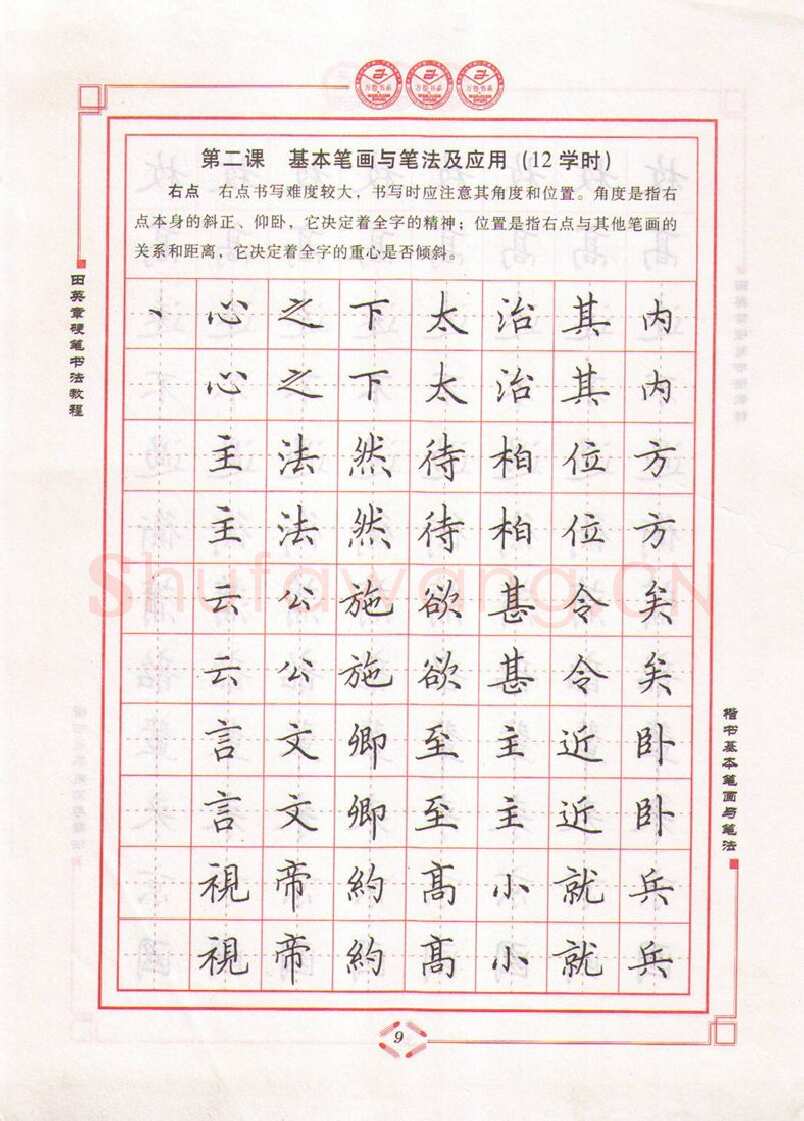 第二课 基本笔画与笔法及应用(12学时)
右点 右点书写难度较大，书写时应注意其角度和位置。角度是指右
点本身的斜正、仰卧，它决定着全字的精神；位置是指右点与其他笔画的
关系和距离，它决定着全字的重心是否倾斜。
田英章硬笔书法教程
丶 心 之 下 太 治 其 内
心 之 下 太 治 其 内
主 法 然 待 柏 位 方
主 法 然 待 柏 位 方
云 公 施 欲 甚 令 矣
云 公 施 欲 甚 令 矣
言 文 卿 至 主 近 卧
言 文 卿 至 主 近 卧
視 帝 約 髙 小 就 兵
視 帝 約 髙 小 就 兵
楷书基本笔画与笔法
Shufawang.CN
9